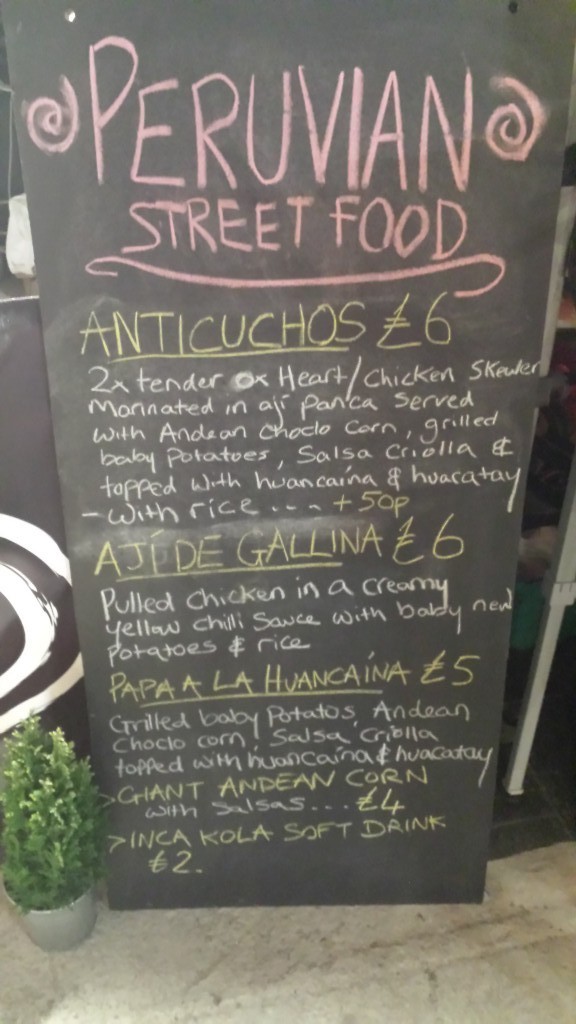 PERUVIAN
STREET FOOD
ANTICUCHOS £6
2x tender ox Heart/Chicken Skewer
Marinated in ají Panca Served
with Andean Choclo Corn, grilled
baby Potatoes, Salsa Criolla &
topped with huancaína & huacatay
- with rice .... +50p
AJÍ DE GALLINA £6
Pulled Chicken in a creamy
yellow chilli Sauce with baby new
potatoes & rice
PAPA A LA HUANCAÍNA £5
Grilled baby Potatos, Andean
Choclo corn, Salsa Criolla
topped with huancaína & huacatay
>GIANT ANDEAN CORN
with Salsas... £4
>INCA KOLA SOFT DRINK
£2.